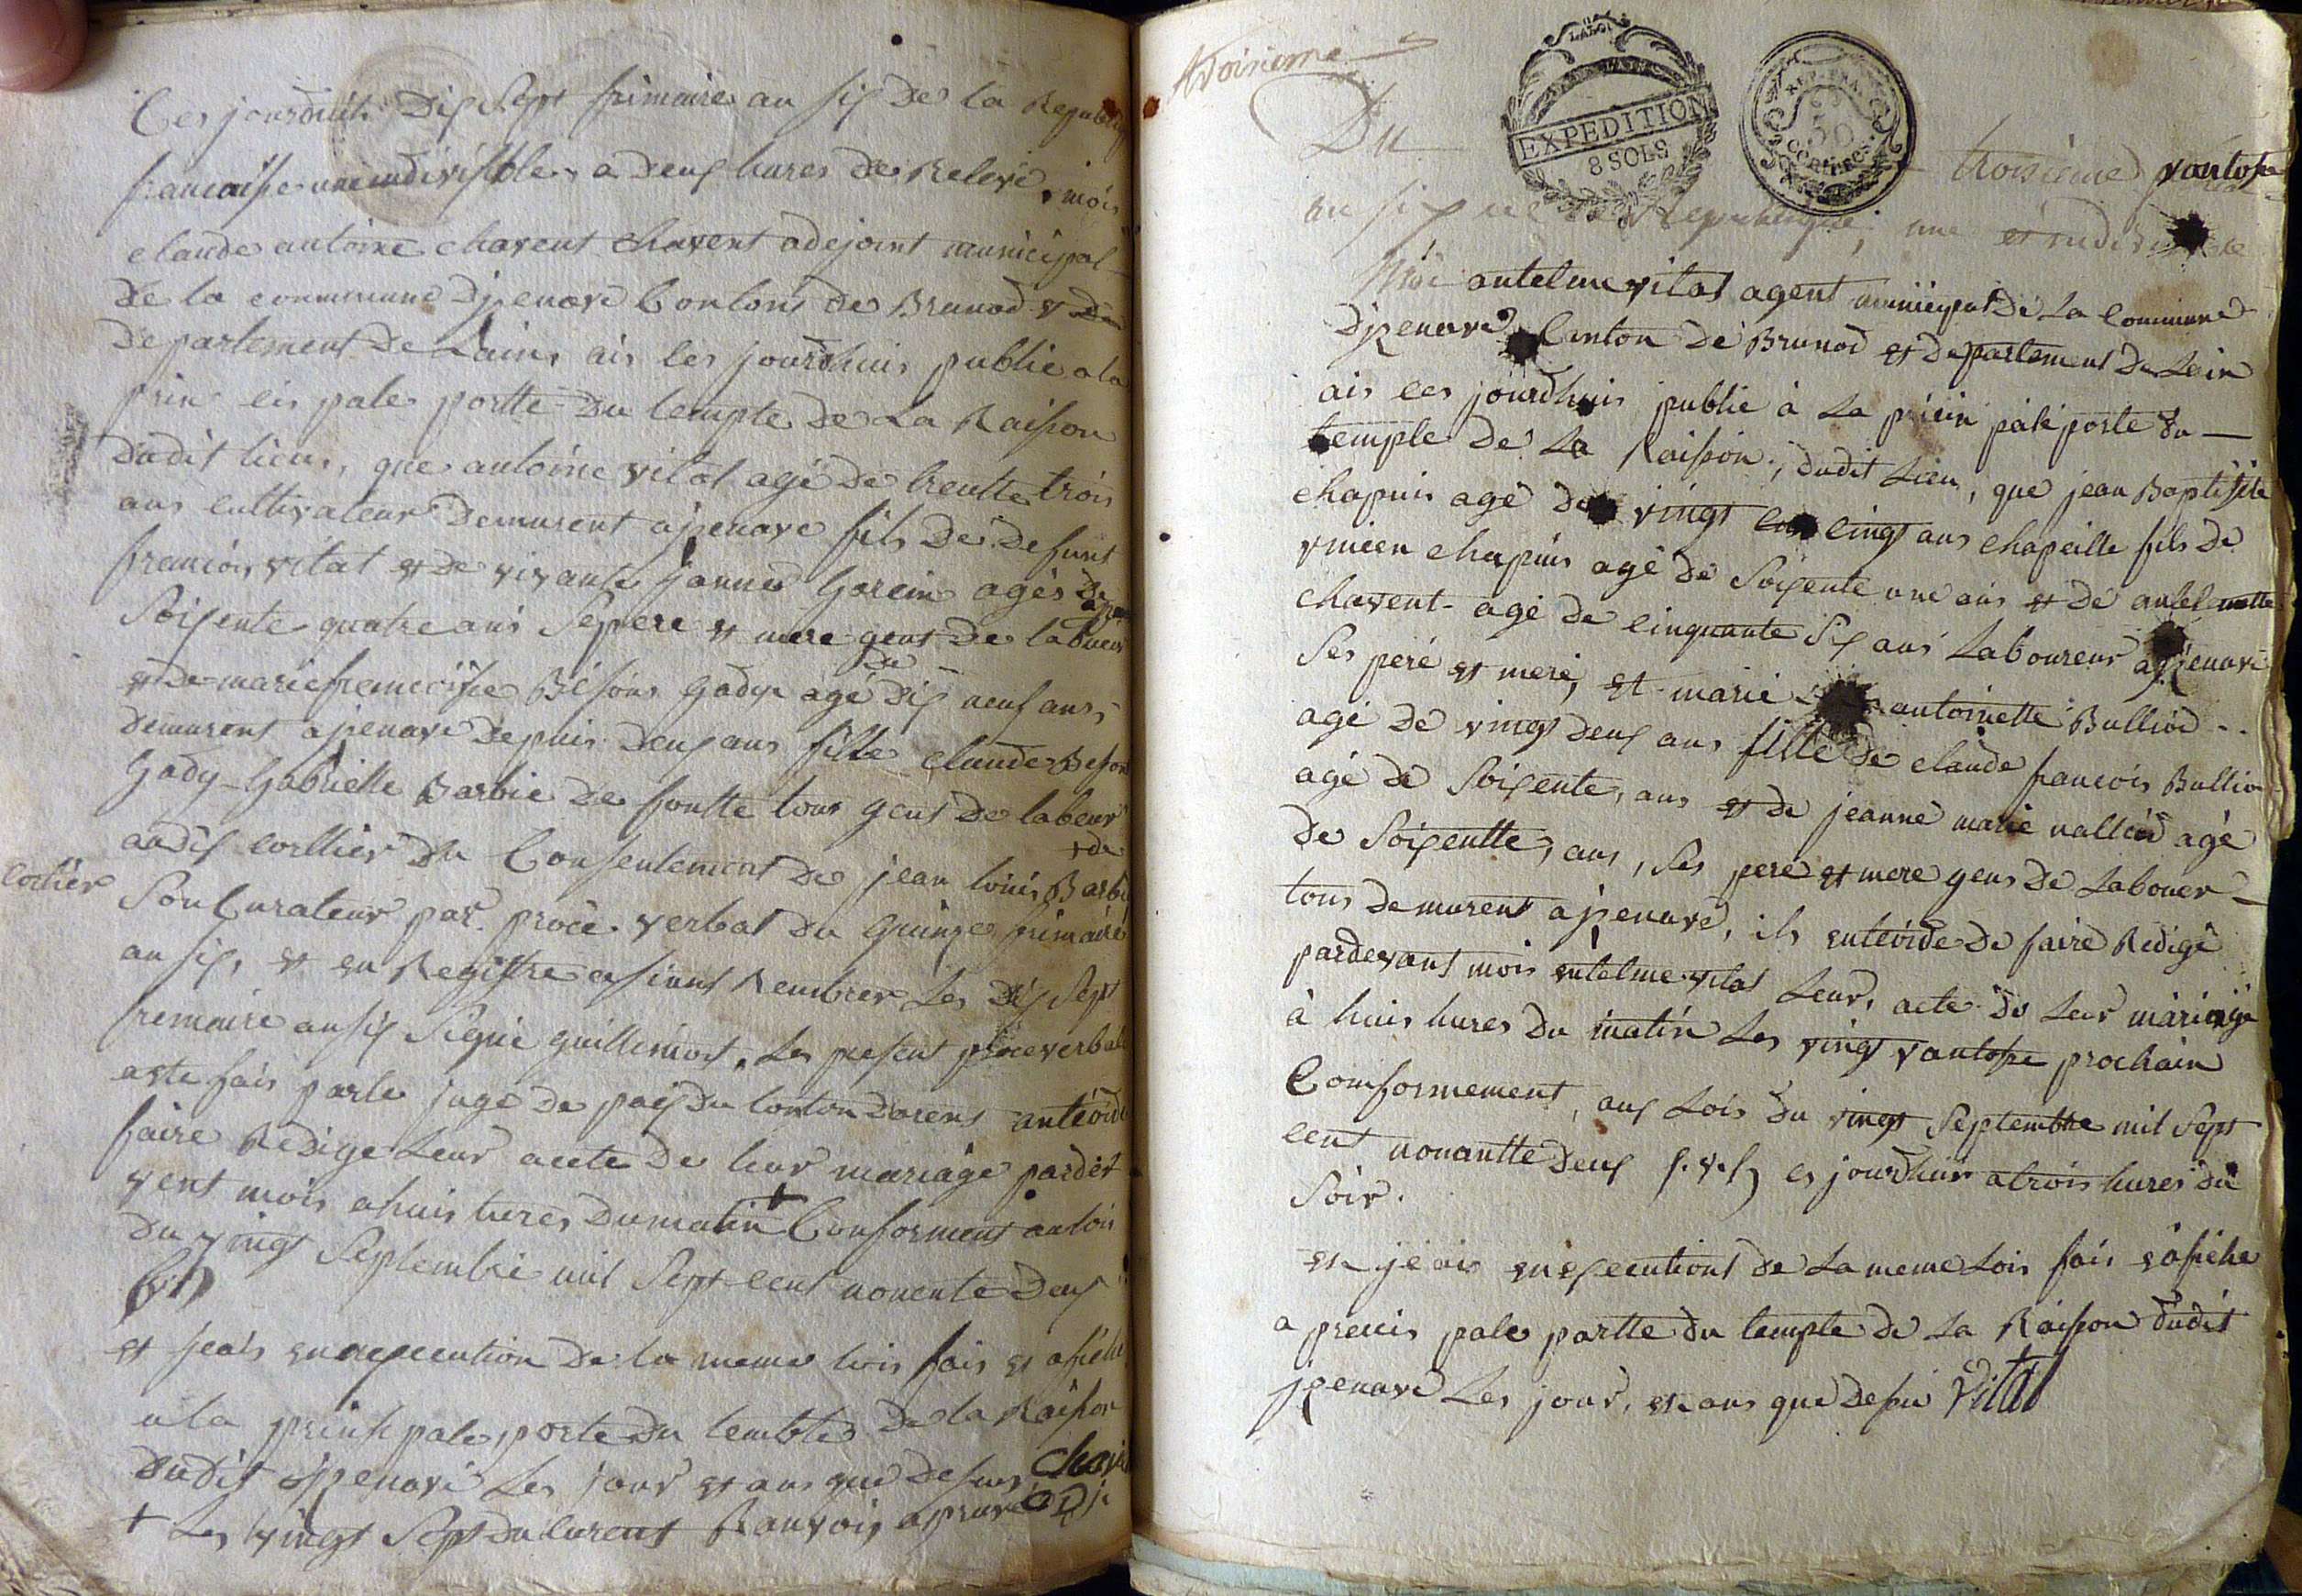 Ces jourdhuit Dix Sept frimaire an six De la Republiq
francaisse une indivissible, a Deux hures De Relevé, mois
claude antoine chavent chavent adejoint municipal
De la commune Djzenave Contont De Brunod & De
Departement De Lain, ais les jourdhuis publie a la
prin cis pale portte Du temple De La Raisson
Dudit lieu, que antoine vilat agé De trentte trois
ans cultivateur Demurent ajzenave fils De Defunt
francois vitat et De vivante janne Gorein agés De
Soixente quatre ans Se pere et mere gent De labueur
et De mariefrancoisse Besons Gadyx agé De Dix neuf ans,
Demurent ajzenave Depuis Deux ans fille claude Beson
Gady Gabrielle Barbie De foutte tous gens De labeur
audix cortlier Du Consentement De jean louis Barbi
cortier
+ de
Son Curateur par procé verbal Du quinze frimaire
an six, et en Registre ensiant Nembrer Les Dix Sept
fremaire ansix Signié guillimont, Les present proceverbal
aste fais parle juge De paix Du Conton Darens antéoide
faire Redige Leur acete De leur mariage pardet
vent mois ahuis hures Dumatin + Conforment aulois
Du vingt Septembre mil Sept cent nonente Deux
(v.s)
et jeais en execution De la meme lois fais et afiché
a la prinsipale porte Du temble De la Raison
Dudit ajzenave Les jour et ans que Desus Chave
+ Les vingt Sept Du Curent Ranvois apruvé adj
troisieme
Du troisieme vantose
an six de la Republique, une et indivisible
Moi antelme vitat agent municipal De La Commune
Djzenave Canton De Brunod et Departement De Lain
ais ces jourdhuis publie à La princin pale porte Du
temple De La Raisson, Dudit Lieu, que jean Baptisste
chapuis agé De vingt cingt ans chapeille fils De
vincen chapuis agé De Soixente une ans et De antelmette
chavent agé De cinquante Six ans Laboureur ajzenave
Ses peré et meré, et marie antoinette Bulliod
agé De vingt Deux ans fille De claude francois Bullio
agé De Soixente, ans et De jeanne marie nalliod agé
De Soixentte, ans, Ses pere et mere gens De Labouer
tous Demurent ajzenave, ils entéoide De faire Redigé
pardevant mois entelme vitat Leur, acte De Leur mariage
à huis hures Du matin Les vingt vantosse prochain
Comformement, aux Lois Du vingt Septembre mil Sept
cent nonantte Deux (.v.s) es jourdhuis atrois hures Du
Soir.
et jeais en execution De La meme Lois fais & afiché
a princis pale portte Du temple De La Raisson Dudit
jzenave Les jour, et ans que Desu Vital
LA LOI
EXPEDITION
8 SOLS
REP. FRA.
50
CENTIMES